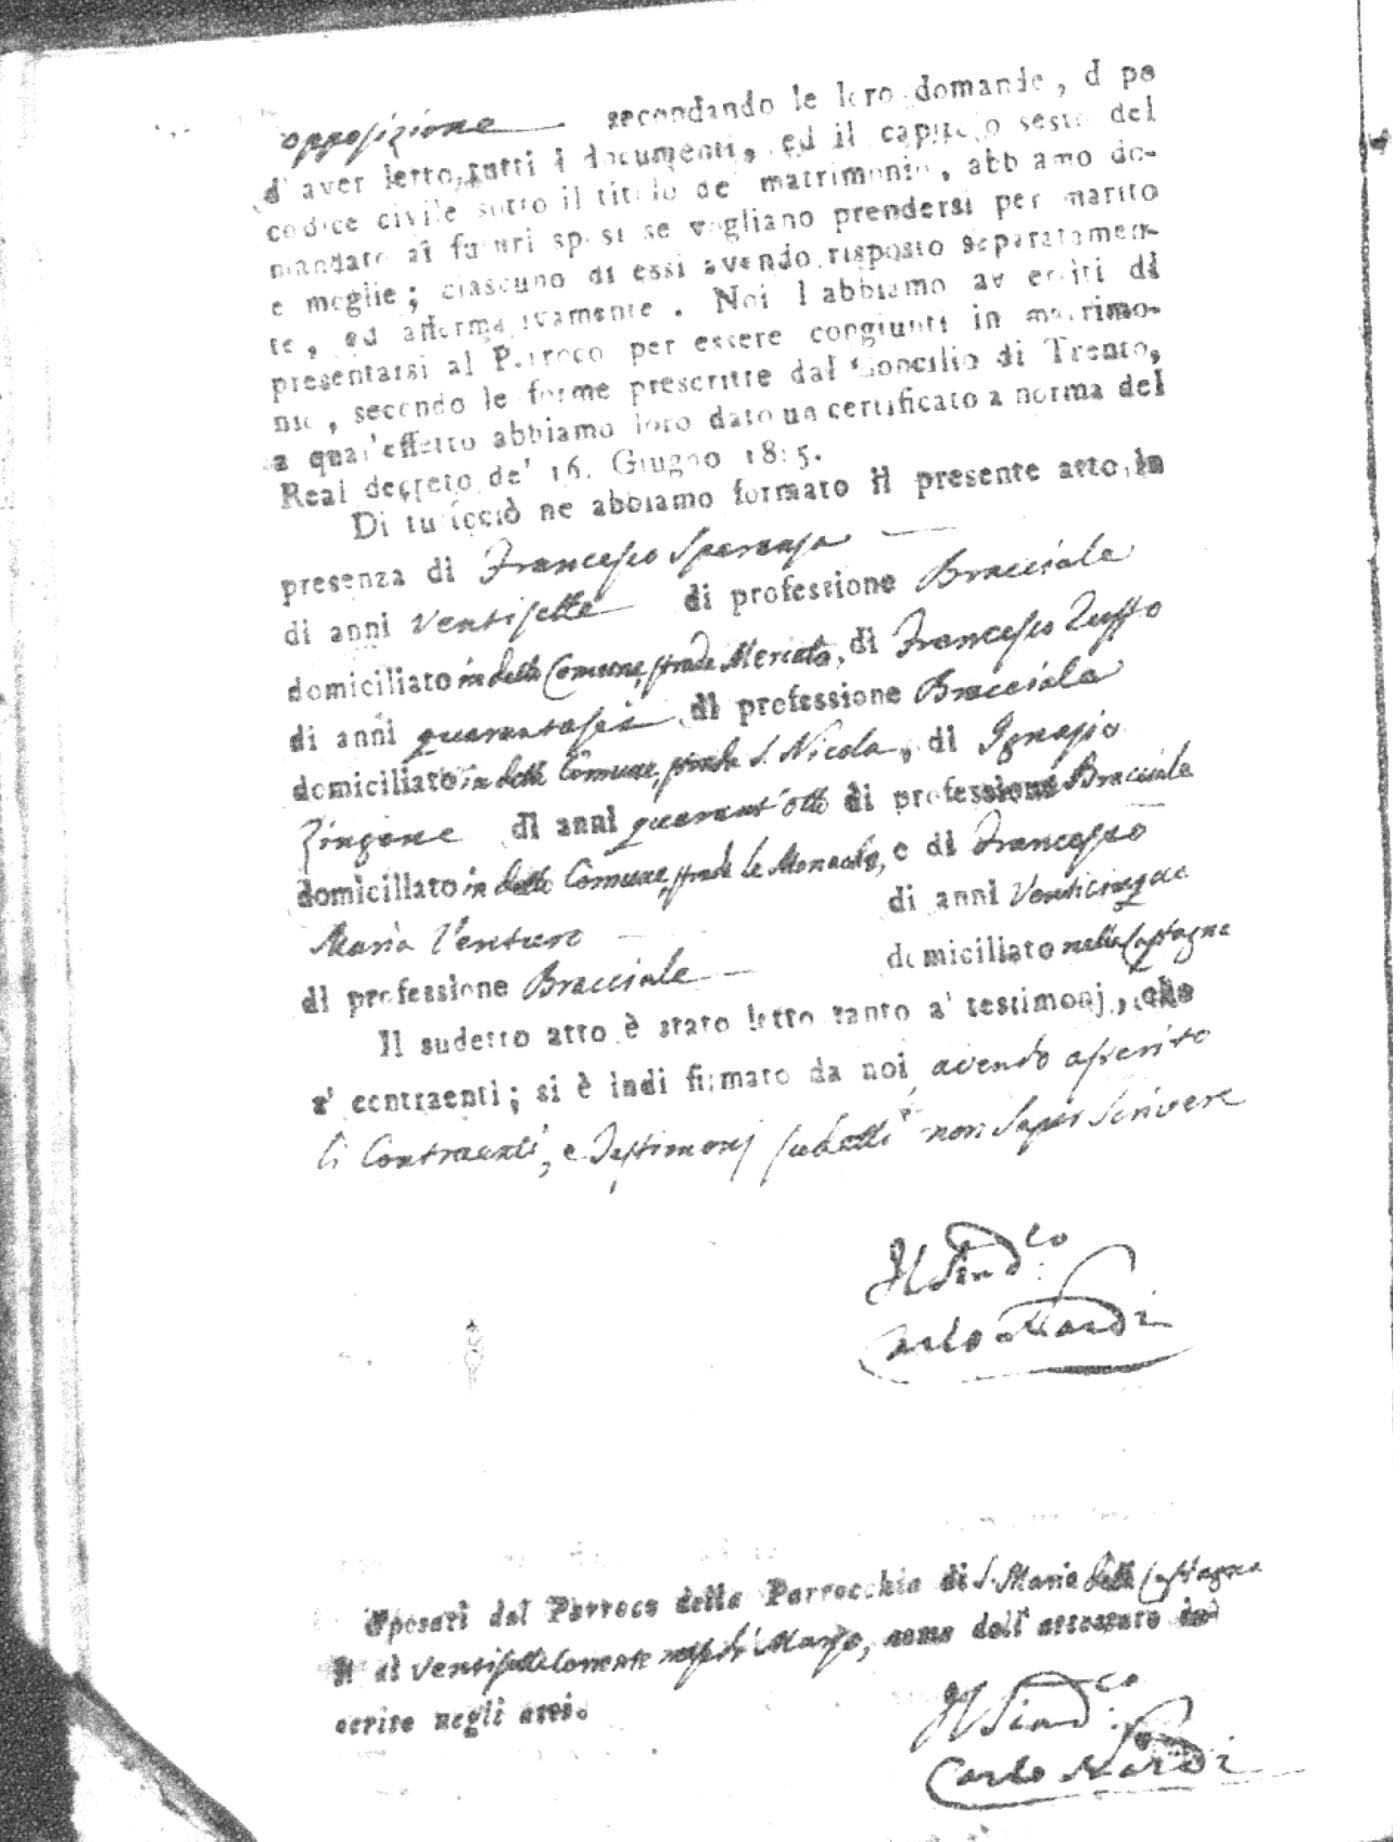 opposizione secondando le loro domande, d po
d'aver letto tutti i documenti, ed il capitolo sesto del
codice civile sotto il titolo de' matrimonio, abb amo do-
mandato ai futuri sposi se vogliano prendersi per marito
e moglie; ciascuno di essi avendo risposto separatamen-
te, ed affermativamente. Noi l abbiamo av ertiti di
presentarsi al Parroco per essere congiunti in matrimo-
nio, secondo le forme prescritte dal Concilio di Trento,
a qual'effetto abbiamo loro dato un certificato a norma del
Real decreto de' 16. Giugno 1815.
Di tuttociò ne abbiamo formato il presente atto in
presenza di Francesco Speranza
di anni Ventisette di professione Bracciale
domiciliato in detto Comune, strada Mercato, di Francesco Zuffo
di anni quarantasei di professione Bracciale
domiciliato in detto Comune, strada S. Nicola, di Ignazio
Zingone di anni quarant'otto di professione Bracciale
domiciliato in detto Comune, strada le Monache, e di Francesco
Maria Venturo di anni Venticinque
di professione Bracciale domiciliato nella Castagna
Il sudetto atto è stato letto tanto a' testimonj, che
a' contraenti; si è indi firmato da noi, avendo asserito
li Contraenti, e Testimonj sudetti non saper scrivere
Il Sind.co
Carlo Nardi
Sposati dal Parroco della Parrocchia di S. Maria della Castagna
li di Ventisette Corrente mese di Marzo, come dell' attestato in
scrito negli atti.
Il Sind.co
Carlo Nardi